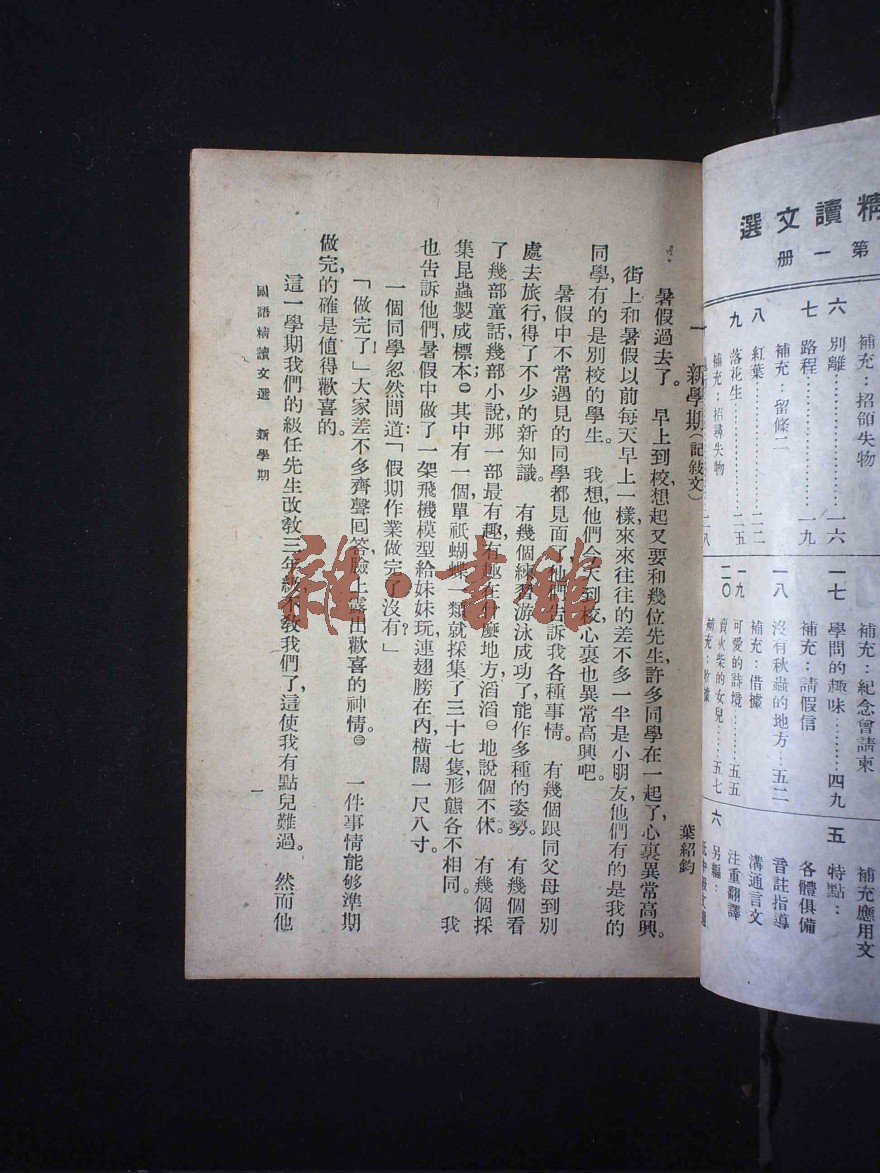 精讀文選
第一册
補充：招領失物
六 別離……………一六
七 路程……………一九
補充：留條二
八 紅葉……………二二
九 落花生…………二五
補充：招尋失物
補充：紀念會請柬
一七 學問的趣味………四九
補充：請假信
一八 沒有秋蟲的地方…五二
補充：借據
一九 可愛的詩境………五五
二〇 賣火柴的女兒……五七
補充應用文
五 特點：
各體俱備
音註指導
溝通言文
注重翻譯
六 另編：
一 新學期（記敍文）
葉紹鈞
暑假過去了。早上到校，想起又要和幾位先生許多同學在一起了，心裏異常高興。
街上和暑假以前每天早上一樣，來來往往的差不多一半是小朋友，他們有的是我的
同學，有的是別校的學生。我想，他們今天到校，心裏也異常高興吧。
暑假中不常遇見的同學都見面了，他們告訴我各種事情。有幾個跟同父母到別
處去旅行，得了不少的新知識。有幾個練習游泳成功了，能作多種的姿勢。有幾個看
了幾部童話，幾部小說，那一部最有趣，有趣在什麽地方，滔滔㊀地說個不休。有幾個採
集昆蟲，製成標本㊁；其中有一個，單祇蝴蝶一類，就採集了三十七隻，形態各不相同。我
也告訴他們，暑假中做了一架飛機模型給妹妹玩，連翅膀在內，橫闊一尺八寸。
一個同學忽然問道：「假期作業做完了沒有？」
「做完了！」大家差不多齊聲回答，臉上露出歡喜的神情㊂。一件事情能够準期
做完，的確是值得歡喜的。
這一學期我們的級任先生改敎三年級，不敎我們了，這使我有點兒難過。然而他
國語精讀文選 新學期
一
雜·書館